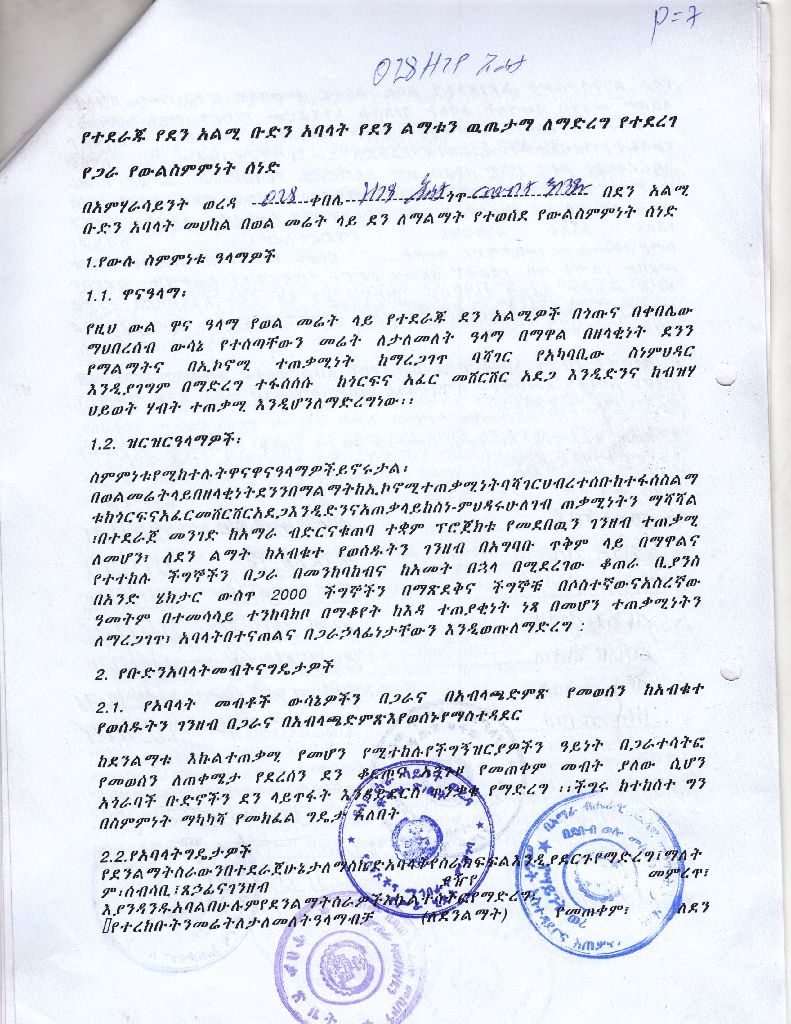 P=7
የተደራጁ የደን አልሚ ቡድን አባላት የደን ልማቱን ዉጤታማ ለማድረግ የተደረገ
የጋራ የውልስምምነት ሰነድ
በአምሃራሳይንት ወረዳ 028 ቀበሌ ንዋ በደን አልሚ
ቡድን አባላት መሀከል በወል መሬት ላይ ደን ለማልማት የተወሰደ የውልስምምነት ሰነድ
1.የውሉ ስምምነቱ ዓላማዎች
1.1. ዋናዓላማ፡
የዚህ ውል ዋና ዓላማ የወል መሬት ላይ የተደራጁ ደን አልሚዎች በጎጡና በቀበሌው
ማህበረሰብ ውሳኔ የተሰጣቸውን መሬት ለታለመለት ዓላማ በማዋል በዘላቂነት ደንን
የማልማትና በኢኮኖሚ ተጠቃሚነት ከማረጋገጥ ባሻገር የአካባቢው ስነምህዳር
እንዲያገግም በማድረግ ተፋሰሰሱ ከጎርፍና አፈር መሸርሸር አደጋ እንዲድንና ከብዝሃ
ህይወት ሃብት ተጠቃሚ እንዲሆንለማድረግነው፡፡
1.2. ዝርዝርዓላማዎች፡
ስምምነቱየሚከተሉትዋናዋናዓላማዎችይኖሩታል፡
በወልመሬትላይበዘላቂነትደንንበማልማትከኢኮኖሚተጠቃሚነትባሻገርህብረተሰቡከተፋሰስልማ
ቱከጎርፍናአፈርመሸርሸርአደጋእንዲድንናአጠቃላይከስነ-ምህዳሩሁለገብ ጠቃሚነትን ማሻሻል
፣በተደራጀ መንገድ ከአማራ ብድርናቁጠባ ተቋም ፕሮጀክቱ የመደበዉን ገንዘብ ተጠቃሚ
ለመሆን፣ ለደን ልማት ከአብቁተ የወሰዱትን ገንዘብ በአግባቡ ጥቅም ላይ በማዋልና
የተተከሉ ችግኞችን በጋራ በመንከባከብና ከአመት በኋላ በሚደረገው ቆጠራ ቢያንስ
በአንድ ሄክታር ውስጥ 2000 ችግኞችን በማጽደቅና ችግኞቹ በሶስተኛውናአስረኛው
ዓመትም በተመሳሳይ ተንከባክቦ በማቆየት ከእዳ ተጠያቂነት ነጻ በመሆን ተጠቃሚነትን
ለማረጋገጥ፣ አባላትበተናጠልና በጋራኃላፊነታቸውን እንዲወጡለማድረግ ፡
2. የቡድንአባላትመብትናግዴታዎች
2.1. የአባላት መብቶች ውሳኔዎችን በጋራና በአብላጫድምጽ የመወሰን ከአብቁተ
የወሰዱትን ገንዘብ በጋራና በአብላጫድምጽእየወሰኑየማስተዳደር
ከደንልማቱ እኩልተጠቃሚ የመሆን የሚተከሉየችግኝዝርያዎችን ዓይነት በጋራተሳትፎ
የመወሰን ለጠቀሜታ የደረሰን ደን የመጠቀም መብት ያለው ሲሆን
አጎራባች ቡድኖችን ደን ላይጥፋት እንዳይደርስ ጥንቃቄ የማድረግ ፡፡ችግሩ ተከስተ ግን
በስምምነት ማካካሻ የመክፈል ግዴታ አለበት
2.2.የአባላትግዴታዎች
መምረጥ፣
ም፡ሰብሳቢ፣ጸኃፊናገንዘብ
እያንዳንዱአባልበሁሉምየደንልማትስራዎችእኩልተሳትፎየማድረግ
የተረከቡትንመሬትለታለመለትዓላማብቻ (ለደንልማት) የመጠቀም፣ ለደን